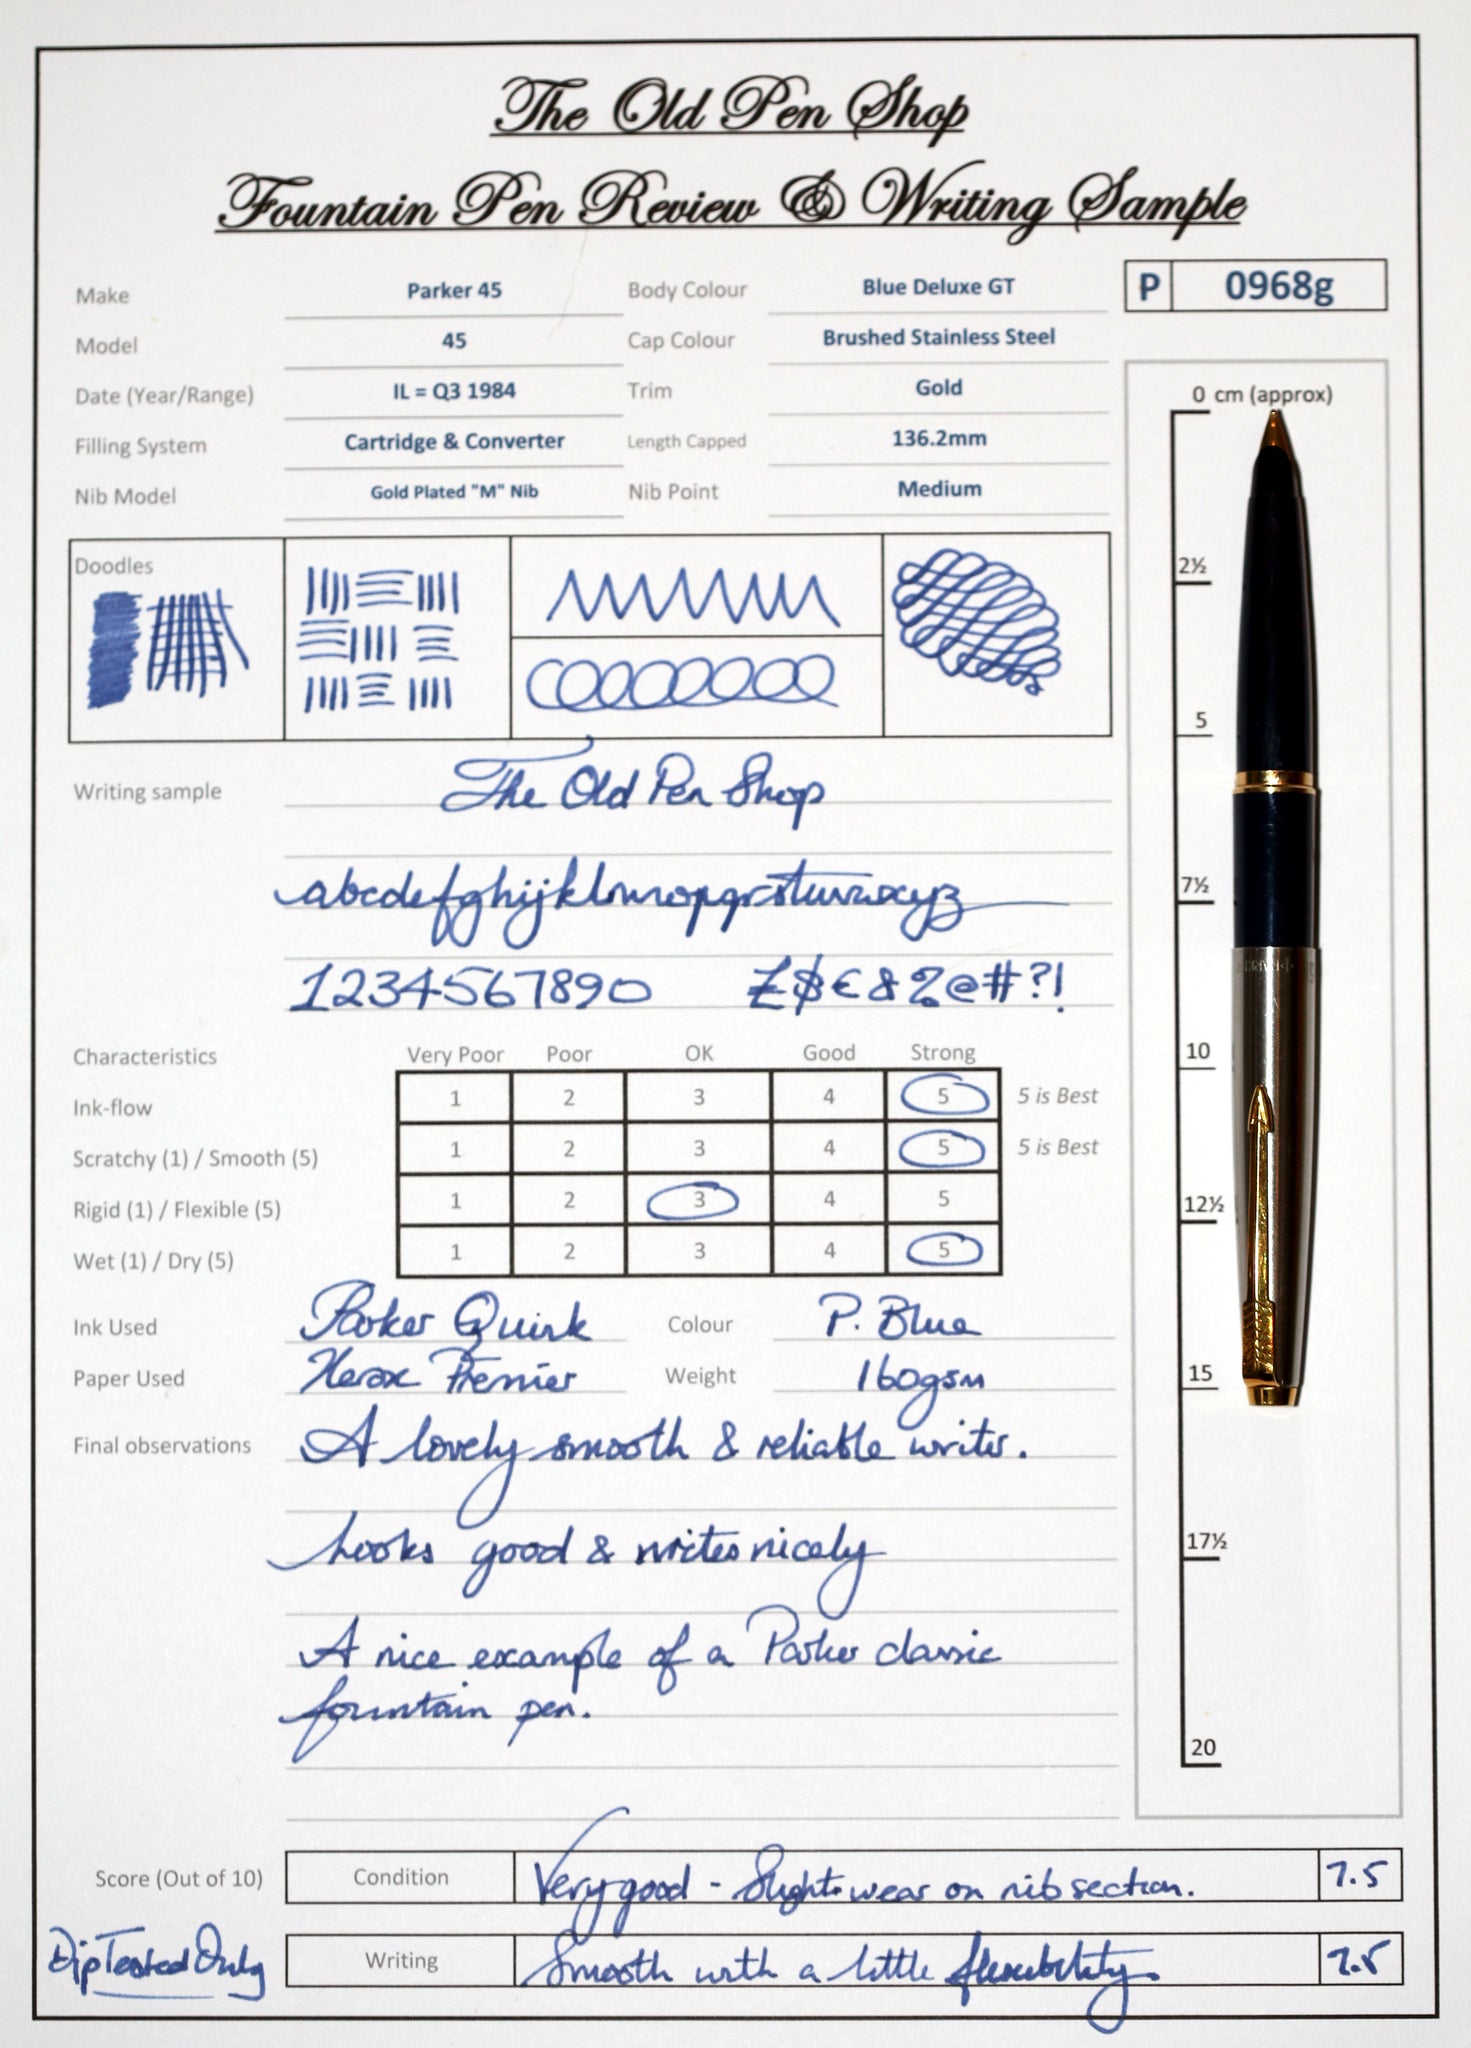 The Old Pen Shop
Fountain Pen Review & Writing Sample
Make Parker 45 Body Colour Blue Deluxe GT P 0968g
Model 45 Cap Colour Brushed Stainless Steel
Date (Year/Range) IL = Q3 1984 Trim Gold
Filling System Cartridge & Converter Length Capped 136.2mm
Nib Model Gold Plated "M" Nib Nib Point Medium
0 cm (approx)
2½
5
7½
10
12½
15
17½
20
Doodles
Writing sample The Old Pen Shop
abcdefghijklmnopqrstuvwxyz
1234567890 £$€&%@#?!
Characteristics Very Poor Poor OK Good Strong
Ink-flow 1 2 3 4 5 5 is Best
Scratchy (1) / Smooth (5) 1 2 3 4 5 5 is Best
Rigid (1) / Flexible (5) 1 2 3 4 5
Wet (1) / Dry (5) 1 2 3 4 5
Ink Used Parker Quink Colour P. Blue
Paper Used Xerox Premier Weight 160gsm
Final observations A lovely smooth & reliable writer.
Looks good & writes nicely
A nice example of a Parker classic
fountain pen.
Score (Out of 10) Condition Very good - Slight wear on nib section. 7.5
Dip Tested Only Writing Smooth with a little flexibility. 7.5